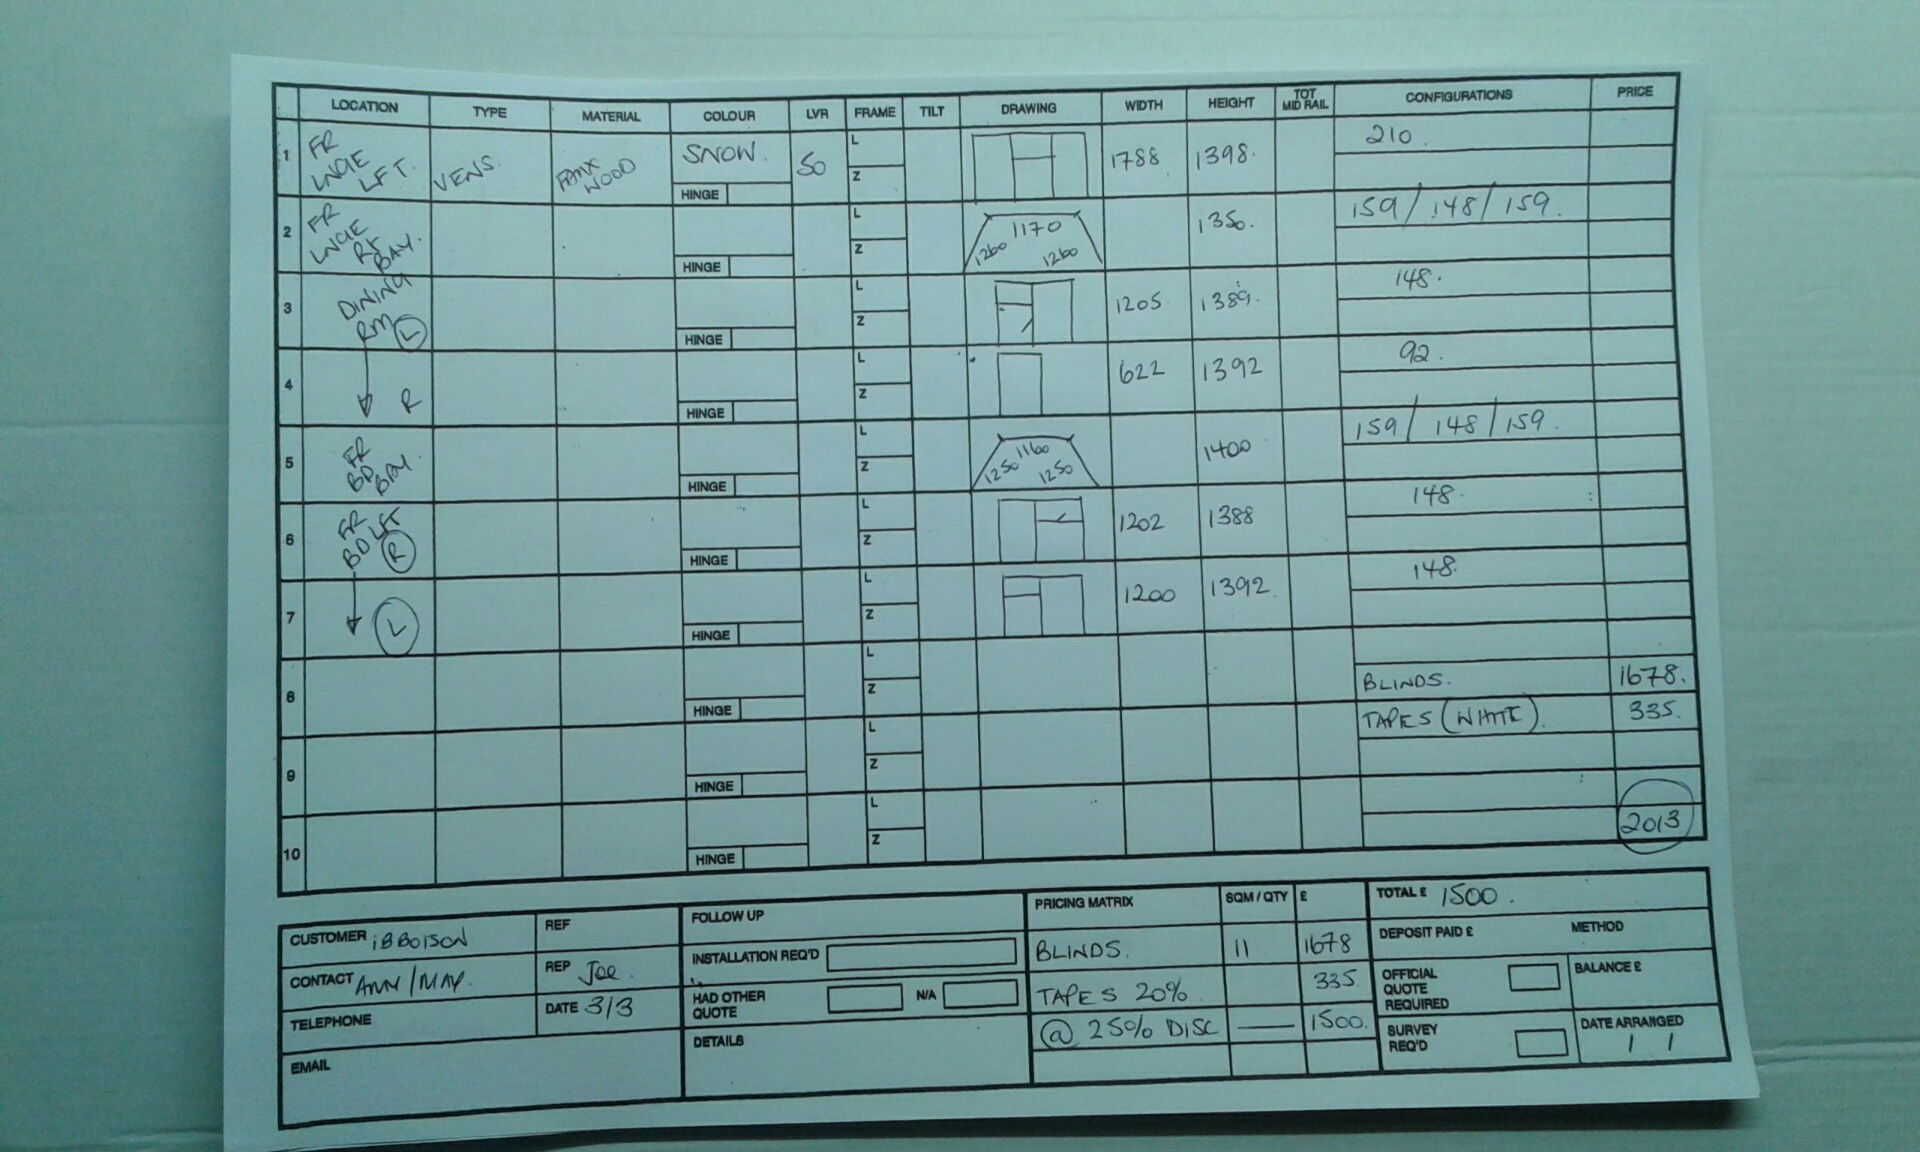 LOCATION TYPE MATERIAL COLOUR LVR FRAME TILT DRAWING WIDTH HEIGHT TOT MID RAIL CONFIGURATIONS PRICE
1 FR LNGE LFT. VENS. FAUX WOOD SNOW. HINGE 50 L Z 1788 1398. 210.
2 FR LNGE RT BAY. HINGE L Z 1260 1170 1260 1350. 159/148/159.
3 DINING RM L HINGE L Z 1205 1389. 148.
4 R HINGE L Z 622 1392 92.
5 FR BD BAY. HINGE L Z 1250 1160 1250 1400 159/148/159.
6 FR BD LFT R HINGE L Z 1202 1388 148.
7 L HINGE L Z 1200 1392 148.
8 HINGE L Z BLINDS. 1678.
TAPES (WHITE). 335.
9 HINGE L Z
10 HINGE L Z 2013
CUSTOMER IBBOTSON
REF
CONTACT ANN/MAY.
REP Joe.
TELEPHONE
DATE 3/3
EMAIL
FOLLOW UP
INSTALLATION REQ'D
HAD OTHER QUOTE N/A
DETAILS
PRICING MATRIX SQM / QTY £
BLINDS. 11 1678
TAPES 20% 335
@ 25% DISC — 1500.
TOTAL £ 1500.
DEPOSIT PAID £ METHOD
OFFICIAL QUOTE REQUIRED
BALANCE £
SURVEY REQ'D
DATE ARRANGED
/ /